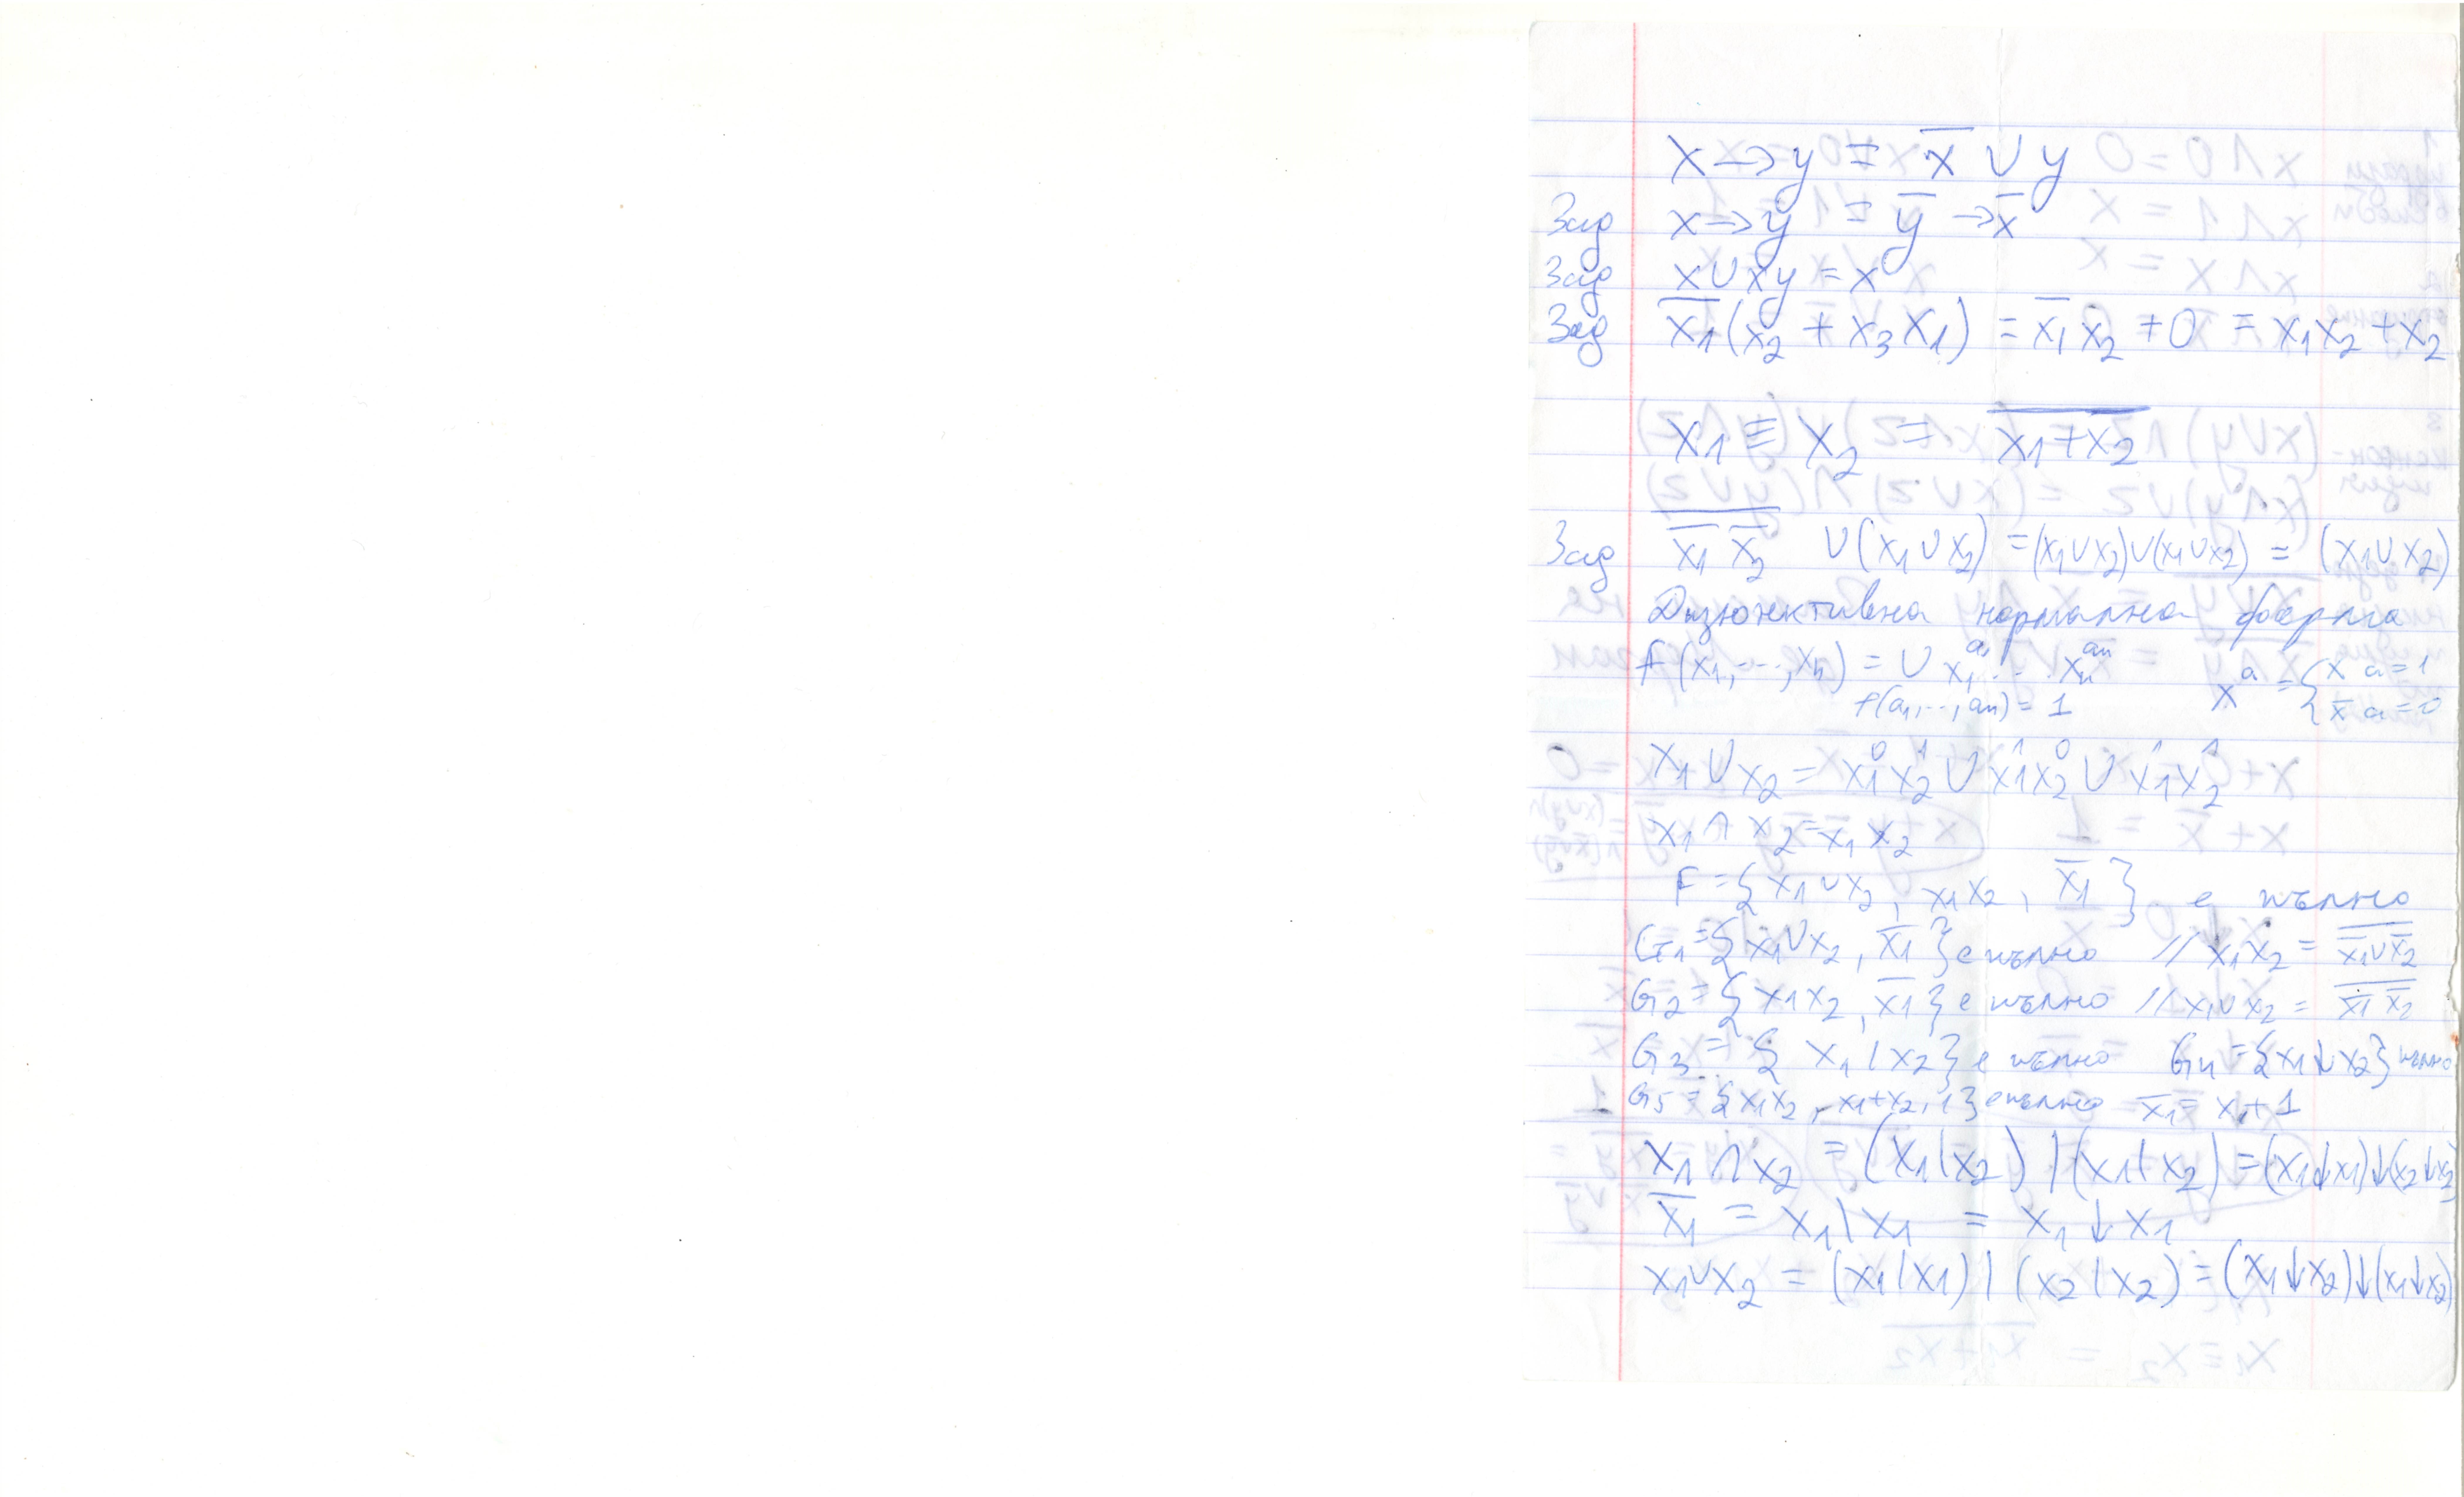 x → y = x̅ ∨ y
Зад x → y = y̅ → x̅
Зад x ∨ xy = x
Зад x̅₁(x₂ + x₃x₁) = x̅₁x₂ + 0 = x₁x₂ + x₂
x₁ ≡ x₂ = \overline{x₁+x₂}
Зад \overline{x̅₁ x̅₂} ∨ (x₁ ∨ x₂) = (x₁∨x₂)∨(x₁∨x₂) = (x₁∨x₂)
Дизюнктивна нормална форма
f(x₁,...,xₙ) = ∪ x₁^{a₁} ... xₙ^{aₙ} x^a = { x a=1
f(a₁,..,aₙ) = 1 x̅ a=0
x₁ ∨ x₂ = x₁⁰x₂¹ ∨ x₁¹x₂⁰ ∨ x₁¹x₂¹
x₁ ∧ x₂ = x₁ x₂
F = {x₁∨x₂, x₁x₂, x̅₁} е пълно
G₁ = {x₁∨x₂, x̅₁} е пълно // x₁x₂ = \overline{x̅₁∨x̅₂}
G₂ = {x₁x₂, x̅₁} е пълно // x₁∨x₂ = \overline{x̅₁ x̅₂}
G₃ = {x₁|x₂} е пълно G₄ = {x₁↓x₂} пълно
G₅ = {x₁x₂, x₁+x₂, 1} е пълно x̅₁ = x₁+1
x₁ ∧ x₂ = (x₁|x₂)|(x₁|x₂) = (x₁↓x₁)↓(x₂↓x₂)
x̅₁ = x₁|x₁ = x₁↓x₁
x₁∨x₂ = (x₁|x₁)|(x₂|x₂) = (x₁↓x₂)↓(x₁↓x₂)